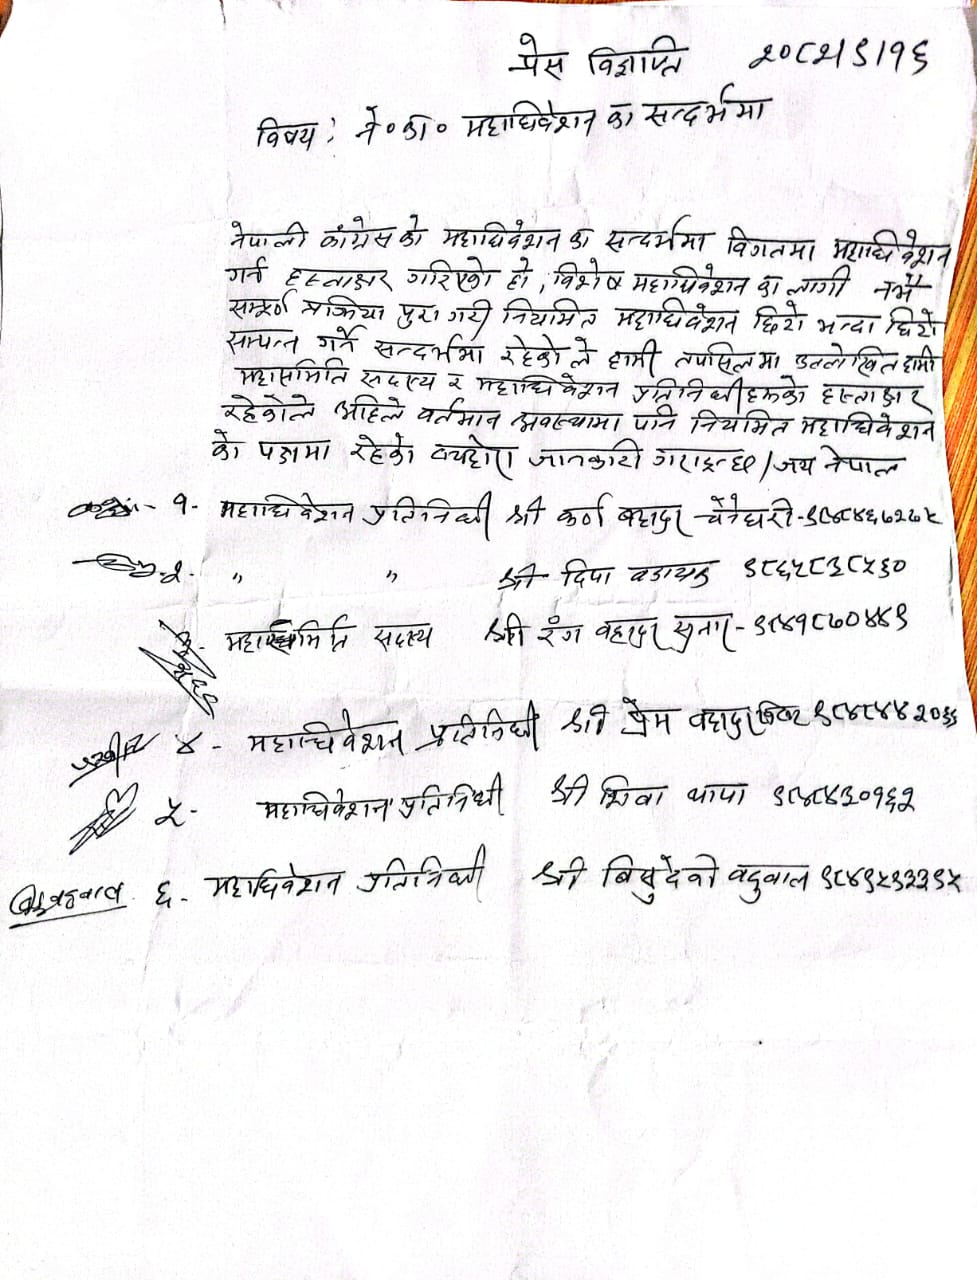 प्रेस विज्ञप्ति २०८२।९।१६
विषय: ने०का० महाधिवेशन का सन्दर्भमा
नेपाली कांग्रेस को महाधिवेशन का सन्दर्भमा विगतमा महाधिवेशन
गर्न हस्ताक्षर गरिएको हो, विशेष महाधिवेशन का लागी नभै
सम्पूर्ण प्रक्रिया पुरा गरी नियमित महाधिवेशन छिटो भन्दा छिटो
सम्पन्न गर्ने सन्दर्भमा रहेको ले हामी तपसिल मा उल्लेखित हामी
महासमिति सदस्य र महाधिवेशन प्रतिनिधीहरुको हस्ताक्षर
रहेकोले अहिले वर्तमान अवस्थामा पनि नियमित महाधिवेशन
को पक्षमा रहेको व्यहोरा जानकारी गराइन्छ / जय नेपाल
१- महाधिवेशन प्रतिनिधी श्री कर्ण बहादुर
२- " " श्री दिपा ९८६५८३८५६०
३- महासमिति सदस्य श्री रंग बहादुर सुनार - ९८४१८७०४४९
४- महाधिवेशन प्रतिनिधी श्री प्रेम बहादुर
५- महाधिवेशन प्रतिनिधी श्री शिवा थापा ९८४८४३०१६२
६- महाधिवेशन प्रतिनिधी श्री